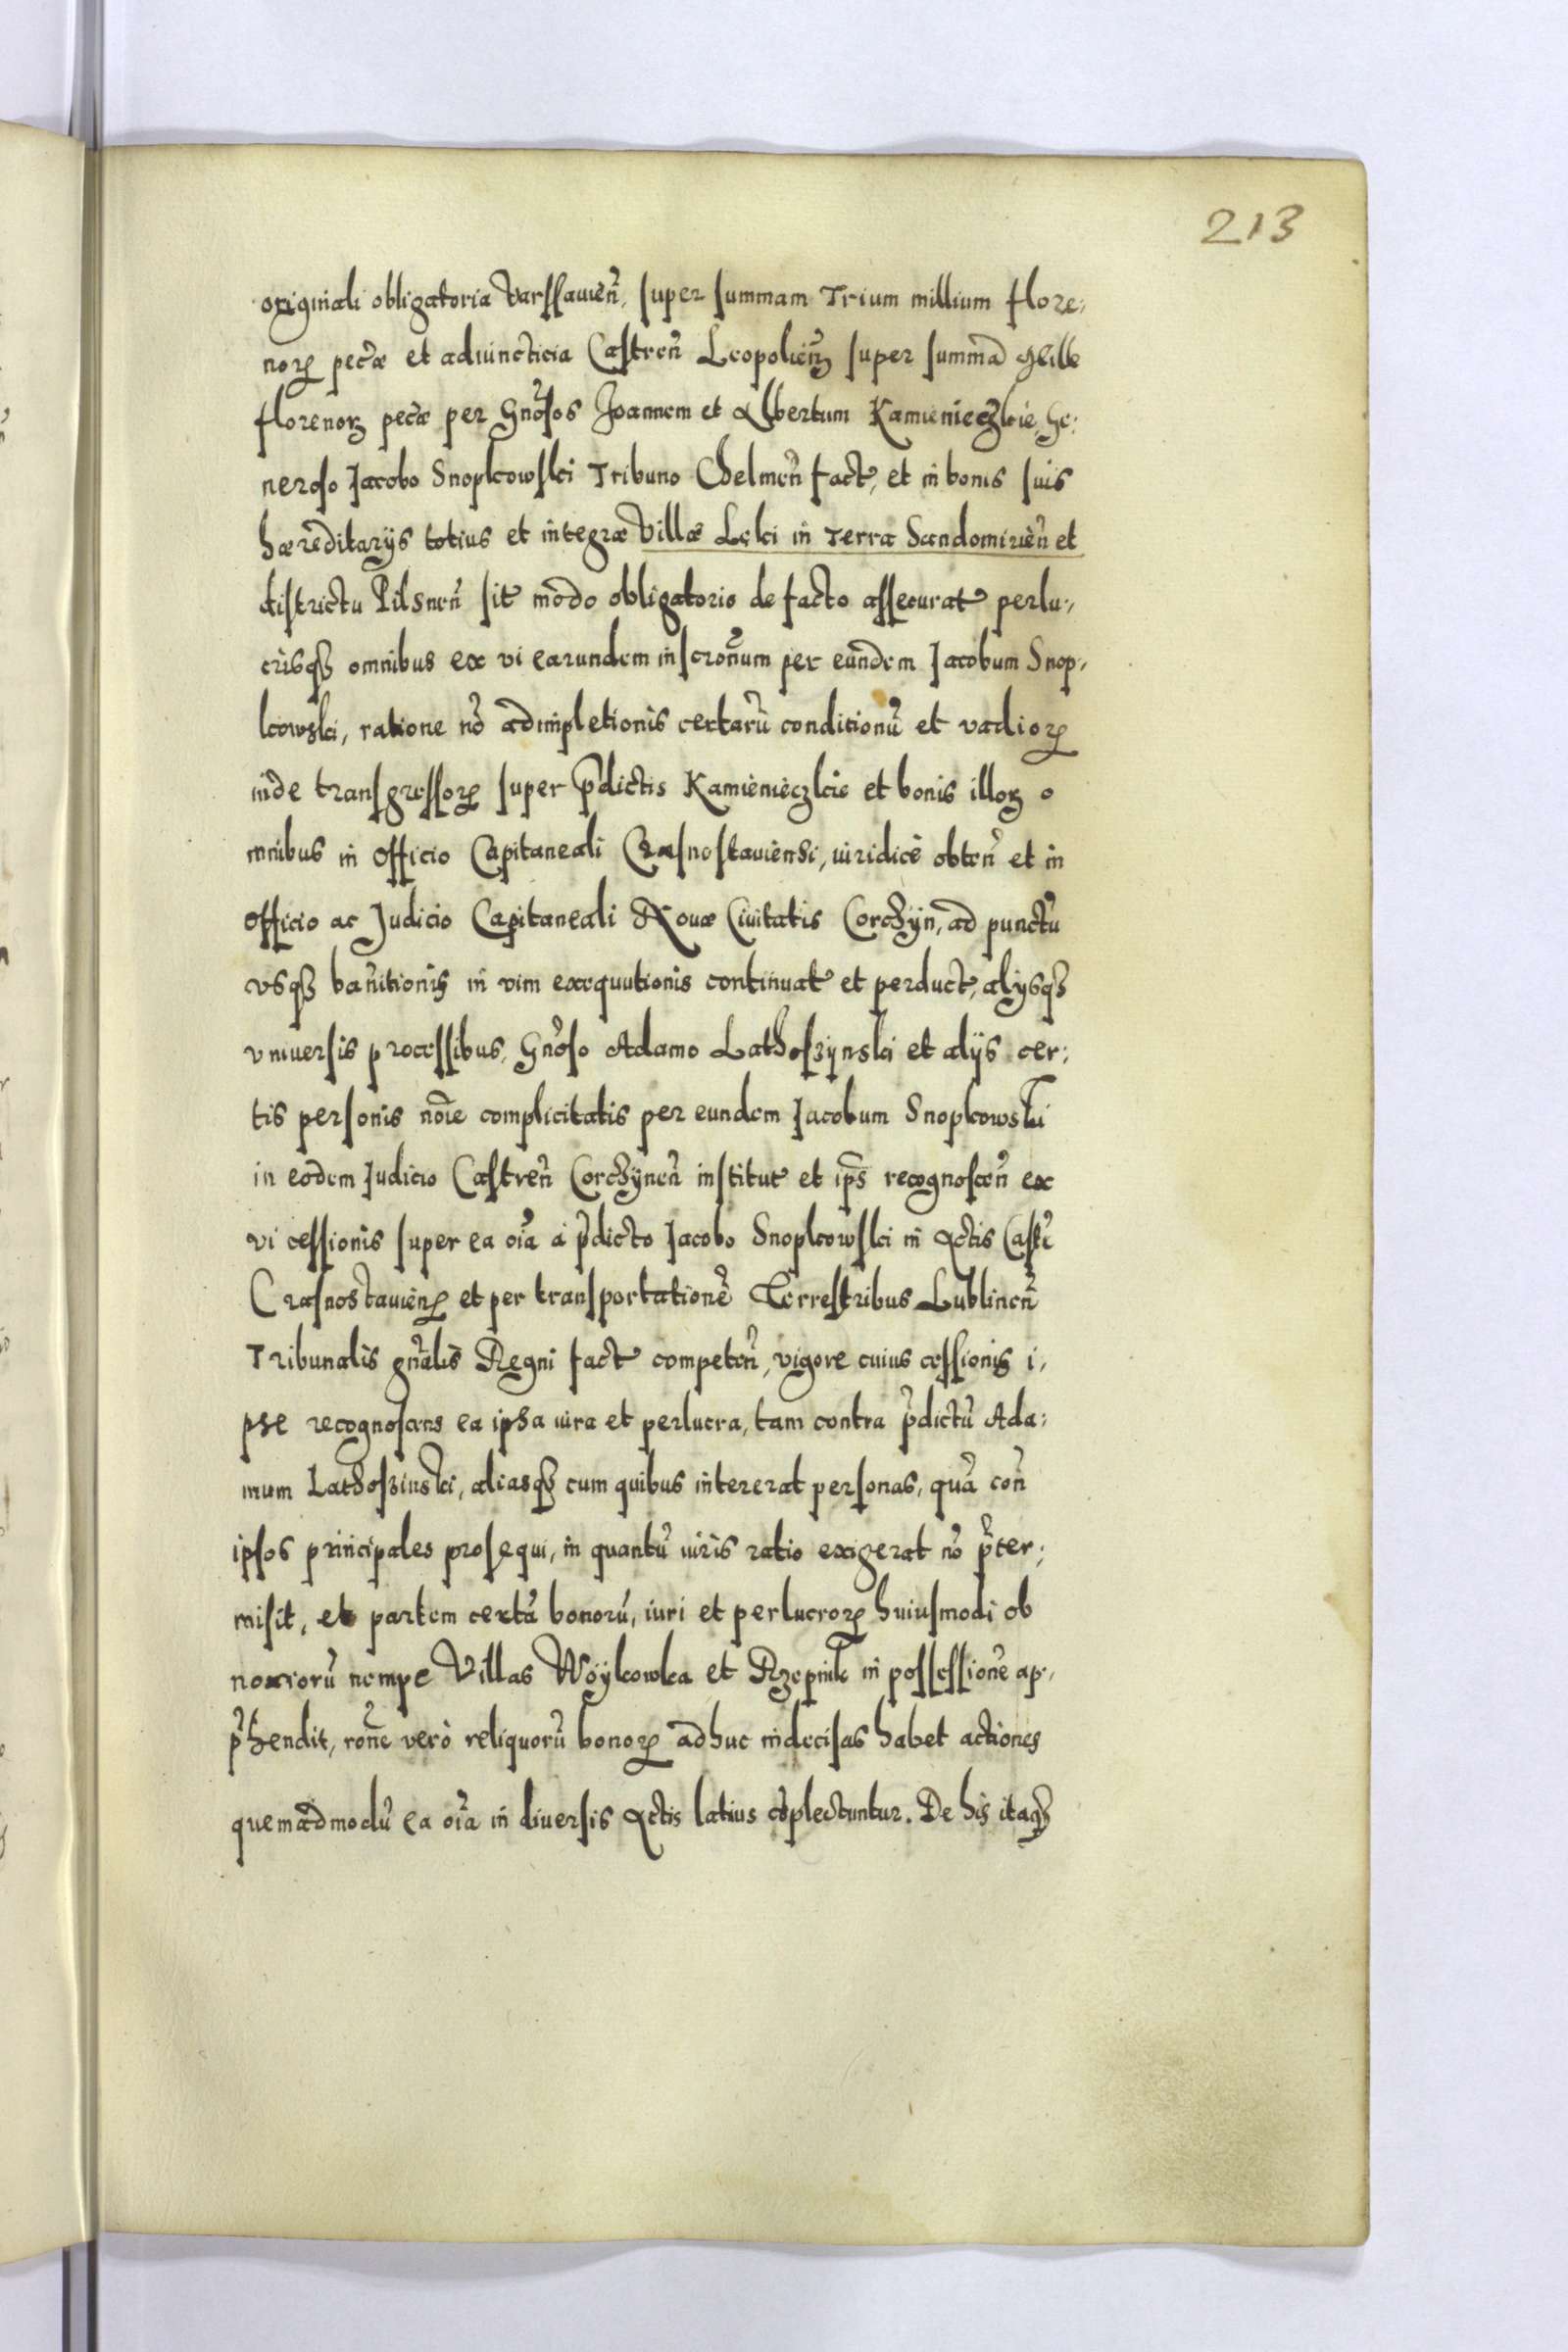 213
originali obligatoria Varssavien̄, super summam Trium millium flore,
noꝝ pec̄æ et adiuncticia Castren̄ Leopolien̄ super summā Mille
florenoꝝ pec̄æ per Gn̄osos Joannem et Albertum Kamienieczkie, Ge:
neroso Jacobo Snopkowski Tribuno Chelmen̄ fact, et in bonis suis
hæreditarijs totius et integræ Villæ Lęki in Terra Sandomirien̄ et
districtu Pilsnen̄ sit modo obligatorio de facto assecurat perlu,
crisqꝫ omnibus ex vi earundem inscron̄um per eundem Jacobum Snop,
kowski, ratione nō adimpletionis certarū conditionū et vadioꝝ
inde transgressoꝝ super p̄dictis Kamienieczkie et bonis illoꝝ o
mnibus in officio Capitaneali Crasnostaviensi, iuridicè obten̄ et in
officio ac Judicio Capitaneali Novæ Civitatis Corchyn, ad punctū
vsqꝫ ban̄itionis in vim exequutionis continuat et perduct, alysqꝫ
vniversis processibus, Gn̄oso Adamo Lathoszynski et alijs cer:
tis personis noīe complicitatis per eundem Jacobum Snopkowski
in eodem Judicio Castren̄ Corchynen̄ institut et ip̄s recognoscen̄ ex
vi cessionis super ea oīa à p̄dicto Jacobo Snopkowski in Actis Castr̄
Crasnostavienꝝ et per transportationē Terrestribus Lublinen̄
Tribunalis gn̄alis Regni fact competen̄, vigore cuius cessionis i,
pse recognoscens ea ipsa iura et perlucra, tam contra p̄dictū Ada:
mum Lathoszinski, aliasqꝫ cum quibus intererat personas, quā con̄
ipsos principales prosequi, in quantū iuris ratio exigerat nō p̄ter:
misit, et partem certā bonorū, iuri et perlucroꝝ huiusmodi ob
noxiorū nempe Villas Woÿkowka et Rzepnik in possessionē ap,
p̄hendit, ron̄e verò reliquorū bonoꝝ adhuc indecisas habet actiones
quemadmodū ea oīa in diversis Actis latius cōplectuntur. De his itaqꝫ